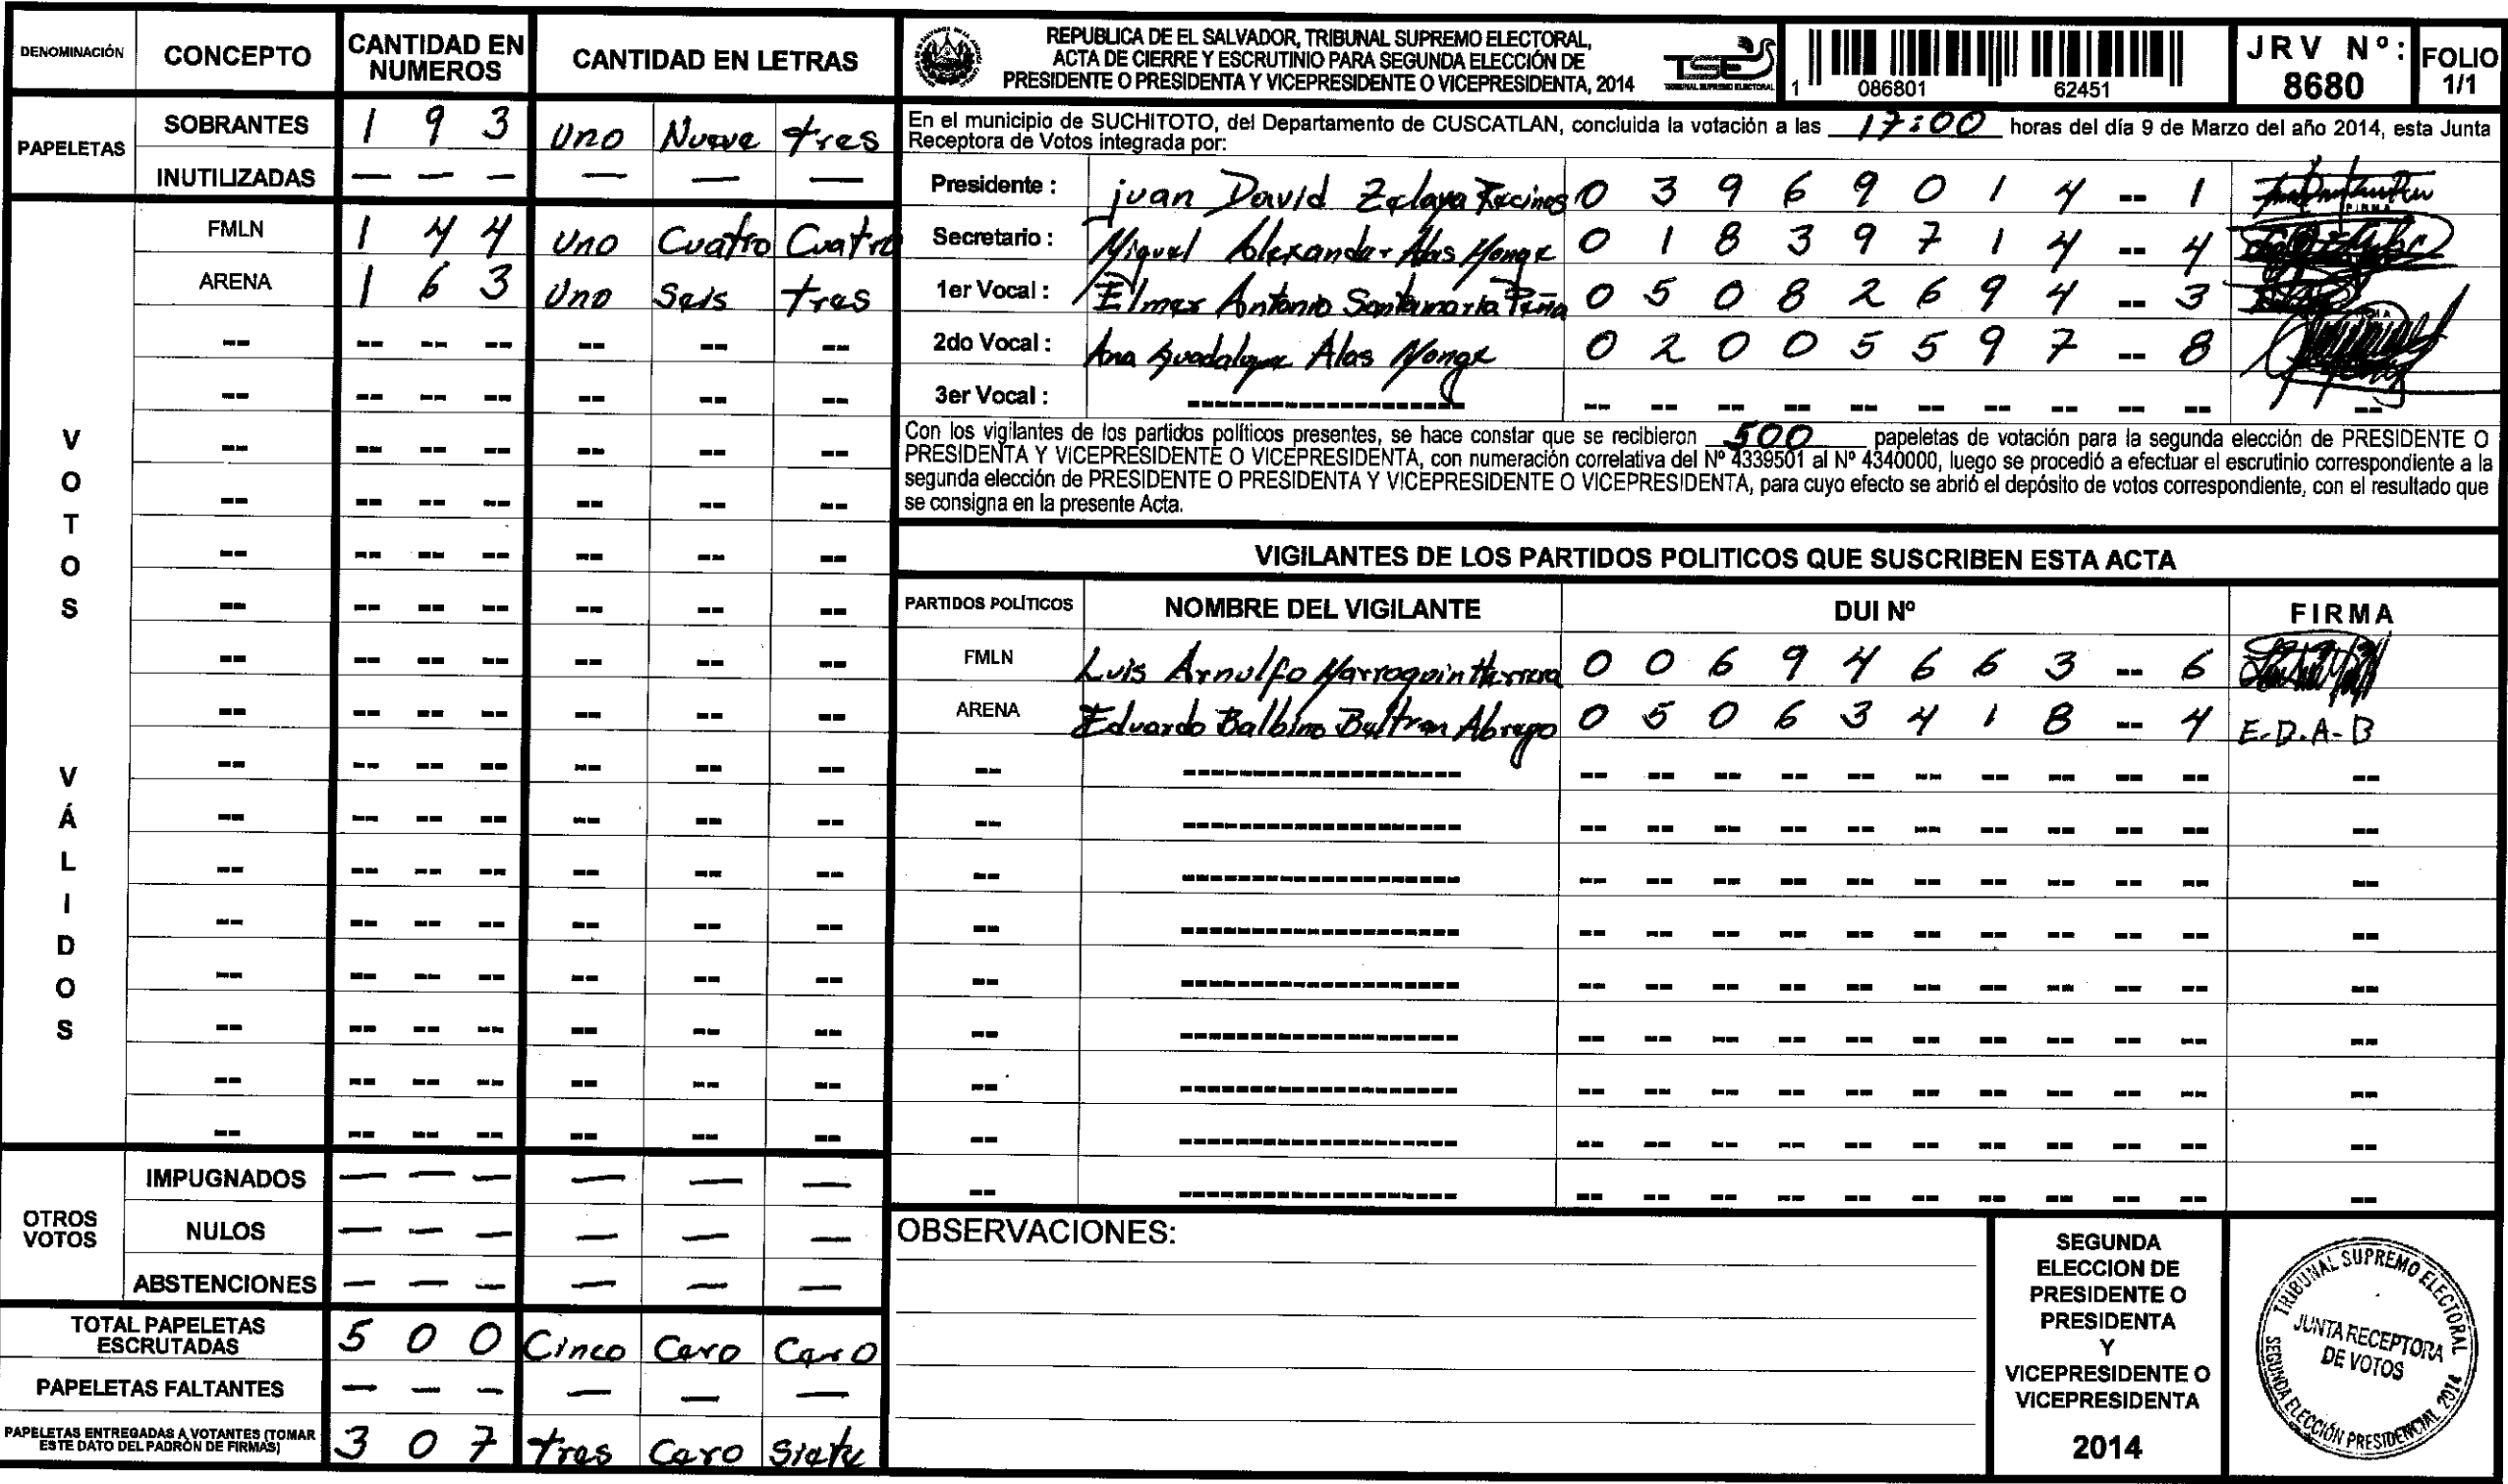 DENOMINACIÓN CONCEPTO CANTIDAD EN NUMEROS CANTIDAD EN LETRAS
PAPELETAS
SOBRANTES 1 9 3 Uno Nueve tres
INUTILIZADAS — — — — — —
VOTOS VÁLIDOS
FMLN 1 4 4 Uno Cuatro Cuatro
ARENA 1 6 3 Uno Seis tres
OTROS VOTOS
IMPUGNADOS — — — — — —
NULOS — — — — — —
ABSTENCIONES — — — — — —
TOTAL PAPELETAS ESCRUTADAS 5 0 0 Cinco Cero Cero
PAPELETAS FALTANTES — — — — — —
PAPELETAS ENTREGADAS A VOTANTES (TOMAR ESTE DATO DEL PADRÓN DE FIRMAS) 3 0 7 tres Cero Siete
REPUBLICA DE EL SALVADOR, TRIBUNAL SUPREMO ELECTORAL,
ACTA DE CIERRE Y ESCRUTINIO PARA SEGUNDA ELECCIÓN DE
PRESIDENTE O PRESIDENTA Y VICEPRESIDENTE O VICEPRESIDENTA, 2014
TSE
TRIBUNAL SUPREMO ELECTORAL
1 086801 62451
JRV Nº: 8680
FOLIO 1/1
En el municipio de SUCHITOTO, del Departamento de CUSCATLAN, concluida la votación a las 17:00 horas del día 9 de Marzo del año 2014, esta Junta
Receptora de Votos integrada por:
Presidente : juan David Zelaya Recinos 0 3 9 6 9 0 1 4 -- 1
Secretario : Miguel Alexander Alas Monge 0 1 8 3 9 7 1 4 -- 4
1er Vocal : Elmer Antonio Santamaria Peña 0 5 0 8 2 6 9 4 -- 3
2do Vocal : Ana Guadalupe Alas Monge 0 2 0 0 5 5 9 7 -- 8
3er Vocal :
Con los vigilantes de los partidos políticos presentes, se hace constar que se recibieron 500 papeletas de votación para la segunda elección de PRESIDENTE O
PRESIDENTA Y VICEPRESIDENTE O VICEPRESIDENTA, con numeración correlativa del Nº 4339501 al Nº 4340000, luego se procedió a efectuar el escrutinio correspondiente a la
segunda elección de PRESIDENTE O PRESIDENTA Y VICEPRESIDENTE O VICEPRESIDENTA, para cuyo efecto se abrió el depósito de votos correspondiente, con el resultado que
se consigna en la presente Acta.
VIGILANTES DE LOS PARTIDOS POLITICOS QUE SUSCRIBEN ESTA ACTA
PARTIDOS POLÍTICOS NOMBRE DEL VIGILANTE DUI Nº FIRMA
FMLN Luis Arnulfo Marroquin Herrera 0 0 6 9 4 6 6 3 -- 6
ARENA Eduardo Balbino Beltran Abrego 0 5 0 6 3 4 1 8 -- 4 E-D.A-B
OBSERVACIONES:
SEGUNDA
ELECCION DE
PRESIDENTE O
PRESIDENTA
Y
VICEPRESIDENTE O
VICEPRESIDENTA
2014
TRIBUNAL SUPREMO ELECTORAL
JUNTA RECEPTORA
DE VOTOS
SEGUNDA ELECCIÓN PRESIDENCIAL 2014